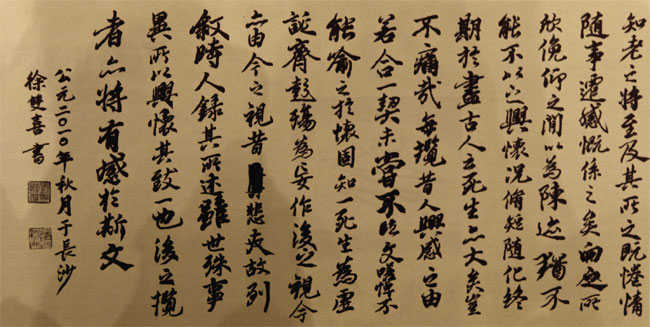 知老之将至及其所之既惓情
随事遷感慨係之矣向之所
欣俛仰之間以為陳迹猶不
能不以之興懷况脩短随化終
期於盡古人云死生亦大矣豈
不痛哉每攬昔人興感之由
若合一契未嘗不臨文嗟悼不
能喻之於懷固知一死生為虛
誕齊彭殤為妄作後之視今
亦由今之視昔悲夫故列
叙時人録其所述雖世殊事
異所以興懷其致一也後之攬
者亦将有感於斯文
公元二〇一〇年秋月于長沙
徐雙喜書